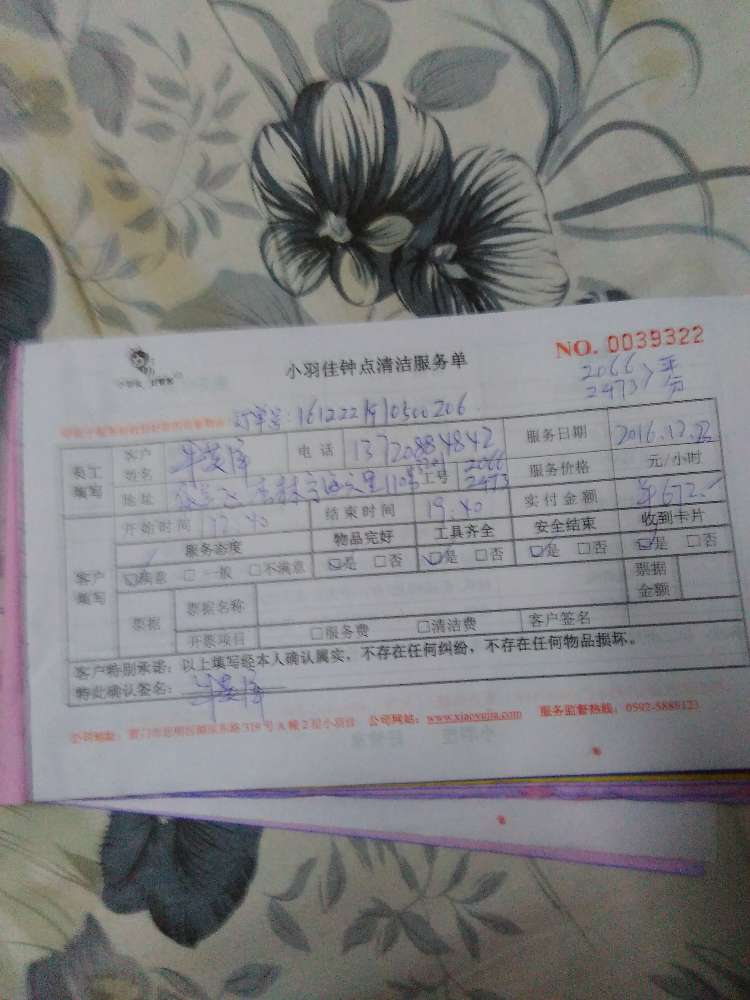 小羽佳钟点清洁服务单 NO. 0039322
2066
2473 平分
订单号:
员工填写 客户姓名 电话 13720884842 服务日期 2016.12.
地址 工号 2066 2473 服务价格 元/小时
客户填写 开始时间 12:40 结束时间 19:40 实付金额 672.-
服务态度 物品完好 工具齐全 安全结束 收到卡片
☑满意 □一般 □不满意 ☑是 □否 ☑是 □否 ☑是 □否 ☑是 □否
票据 票据名称 票据金额
开票项目 □服务费 □清洁费 客户签名
客户特别承诺：以上填写经本人确认属实，不存在任何纠纷，不存在任何物品损坏。
特此确认签名：
公司网站：www.xiaoyujia.com 服务监督热线：0592-5885123